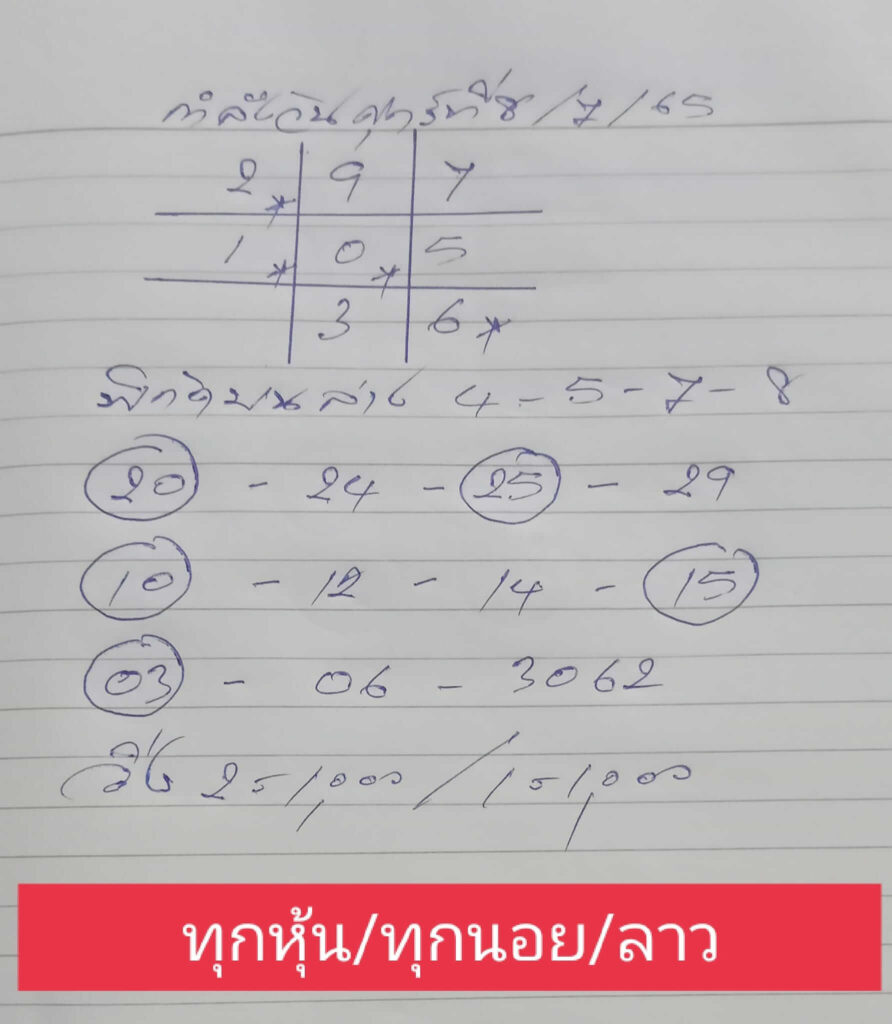 กำลังวันศุกร์ที่ 8/7/65
2* 9 7
1* 0* 5
3 6*
พิกัดบนล่าง 4-5-7-8
20 - 24 - 25 - 29
10 - 12 - 14 - 15
03 - 06 - 3062
วิ่ง 2=1,000/1=1,000
ทุกหุ้น/ทุกนอย/ลาว